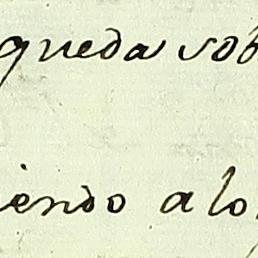 queda sob
iendo alo